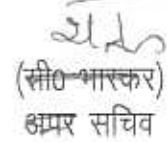 (सी०भास्कर)
अपर सचिव